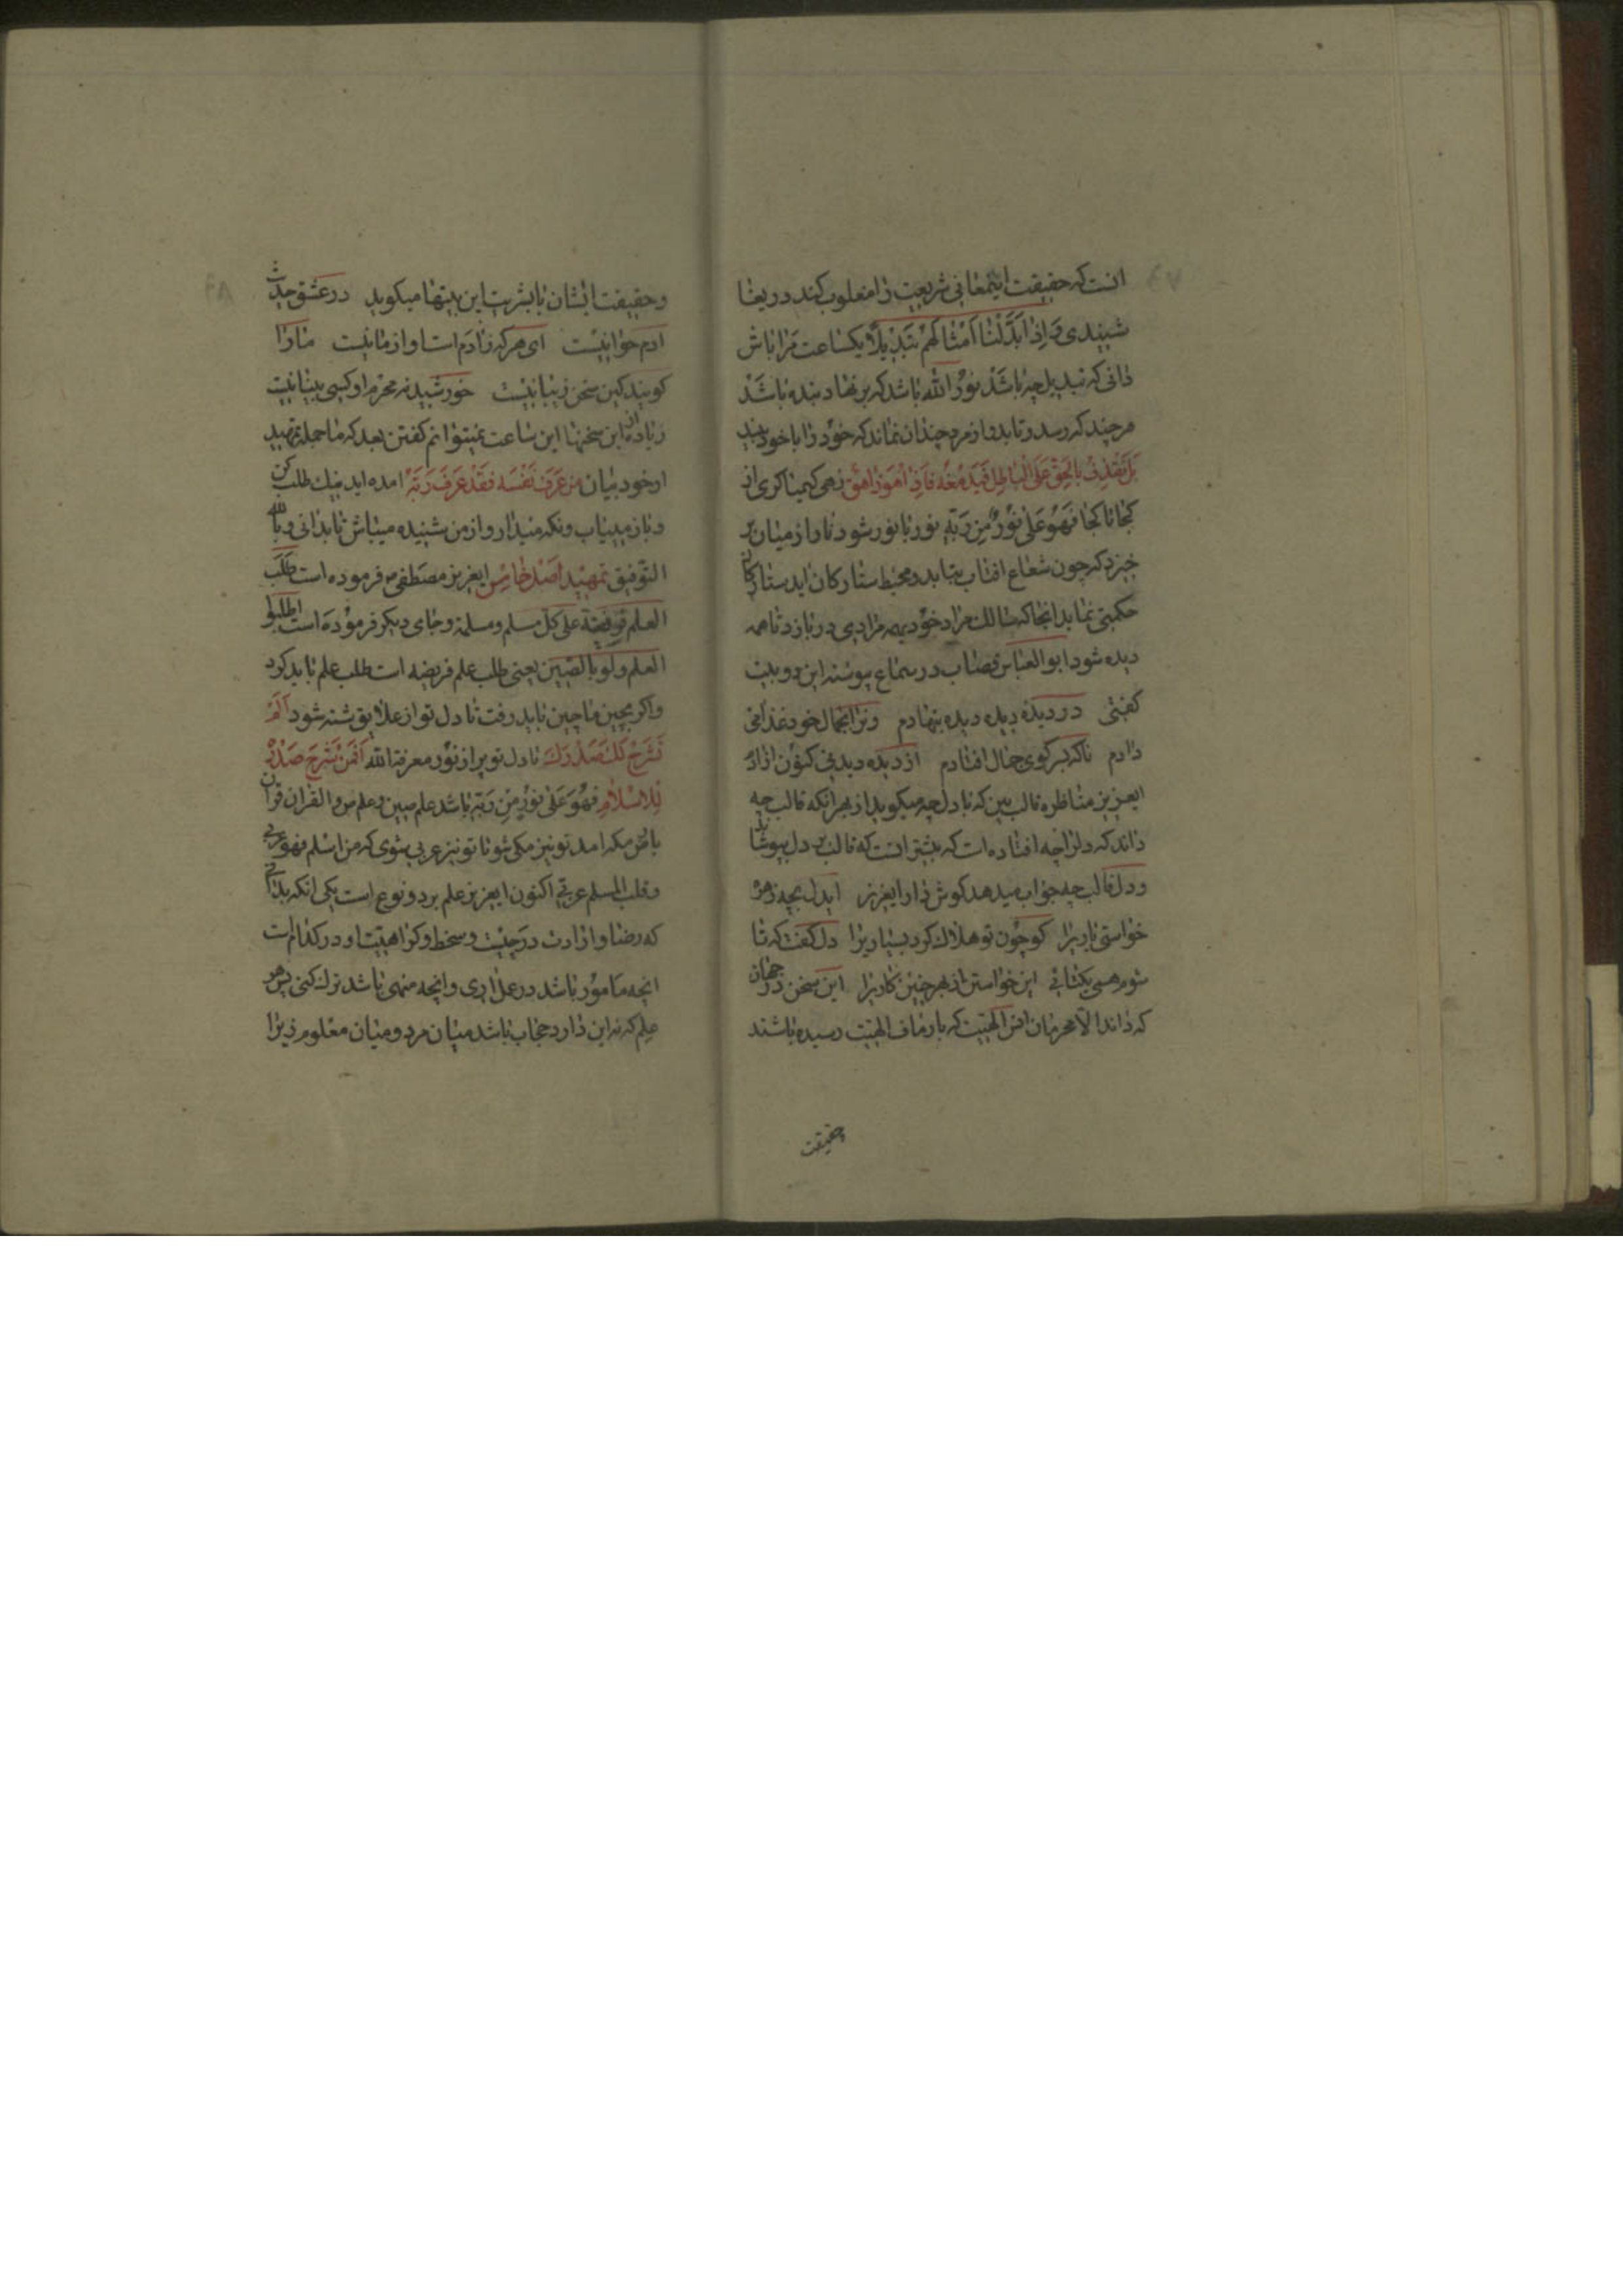 ۴۷
انست که حقیقت اینمعانی شریعت را مغلوب کند دریغا
شنیدی وَاِذا بَدَّلْنا اَمْثالَهُمْ تَبْدیلاً یکساعت مرا باش
دانی که تبدیل چه باشد نورُ الله باشد که بر نهاد بنده باشد
هر چند که رسد و تابد و از مرد چندان نماند که خود را با خود بیند
بَل نَقذِفُ بالحقِّ عَلَی الباطِلِ فَیَدمَغُه فَاِذا هُوَ زاهِقٌ زهی کیمیا کری از
کجا تا کجا فَهُوَ عَلی نُورٍ مِن رَبِّه نور با نور شود نار از میان بر
خیزد که چون شعاع افتاب بتابد و محیط ستارکان اید ستارکانرا
حکمتی نماید انجا که سالک مراد خود بی مرادی در بازد تا همه
دیده شود ابو العباس قصاب در سماع پیوسته این دو بیت
کفتی در دیده دیده دیده بنهادم ونرا بجمال خود غذا می
دادم ناکه بسر کوی جمال افتادم از دیده دیدنی کنون ازادم
ایعزیز مناظره قالب بین که با دل چه میکوید از بهر انکه قالب چه
داند که دل را چه افتاده است که بیشتر انست که قالب بر دل بپوشاند
و دل قالب چه جواب میدهد کوش دار ایعزیز ایدل بچه زهره
خواستی یاریرا کو چون تو هلاک کرد بسیاریرا دل کفت که تا
شوم همی یکتائی این خواستن از بهر چنین کاریرا این سخن در جهان
که داند الا محرمان الهیت که بارصاف الهیت رسیده باشند
حقیقت
۴۸
و حقیقت ایشان با بشریت این بیتها میکوید در عشق حدیث
ادم حوا نیست ای هر که ز ادم است او از ما نیست ما را
کویند کین سخن زیبا نیست خورشید نه مجرم ار کسی بینا نیست
زیاده از این سخنها این ساعت نمیتوانم کفتن بعد که ما جمله تمهید
از خود بیان مَن عَرَفَ نَفْسَه فَقَدْ عَرَفَ رَبَّهُ امده اید نیک طلب کن
و باز میباب و نکه میدار و از من شنیده میباش تا بدانی و بالله
التوفیق تمهید اصل خامس ایعزیز مصطفی ص فرموده است طَلَبَ
العلم فریضة علی کل مسلم و مسلمة و جای دیکر فرموده است اطلبوا
العلم و لو بالصین یعنی طلب علم فریضه است طلب علم باید کرد
و اکر بچین ماچین باید رفت تا دل تو از علایق شسته شود اَلَمْ
نَشرَح لَکَ صَدْرَکَ تا دل تو پر از نور معرفة الله اَفَمَنْ شَرَحَ صَدْرَه
لِلاِسْلامِ فَهُوَ عَلی نُورٍ مِنْ رَبِّه باشد علم مبین و علم ص و القران قران
بامر مکه امد تو نیز مکی شو تا تو نیز عربی شوی که من اسلم فهو عربی
و قلب المسلم عربی اکنون ایعزیز علم بر دو نوع است یکی انکه بدانی
که رضا و ارادت در چیست و سخط و کراهیت او در کدام است
انچه مامور باشد در عمل اری و انچه منهی باشد ترک کنی پس هر
علم که نه این دارد حجاب باشد میان مرد و میان معلوم زیرا